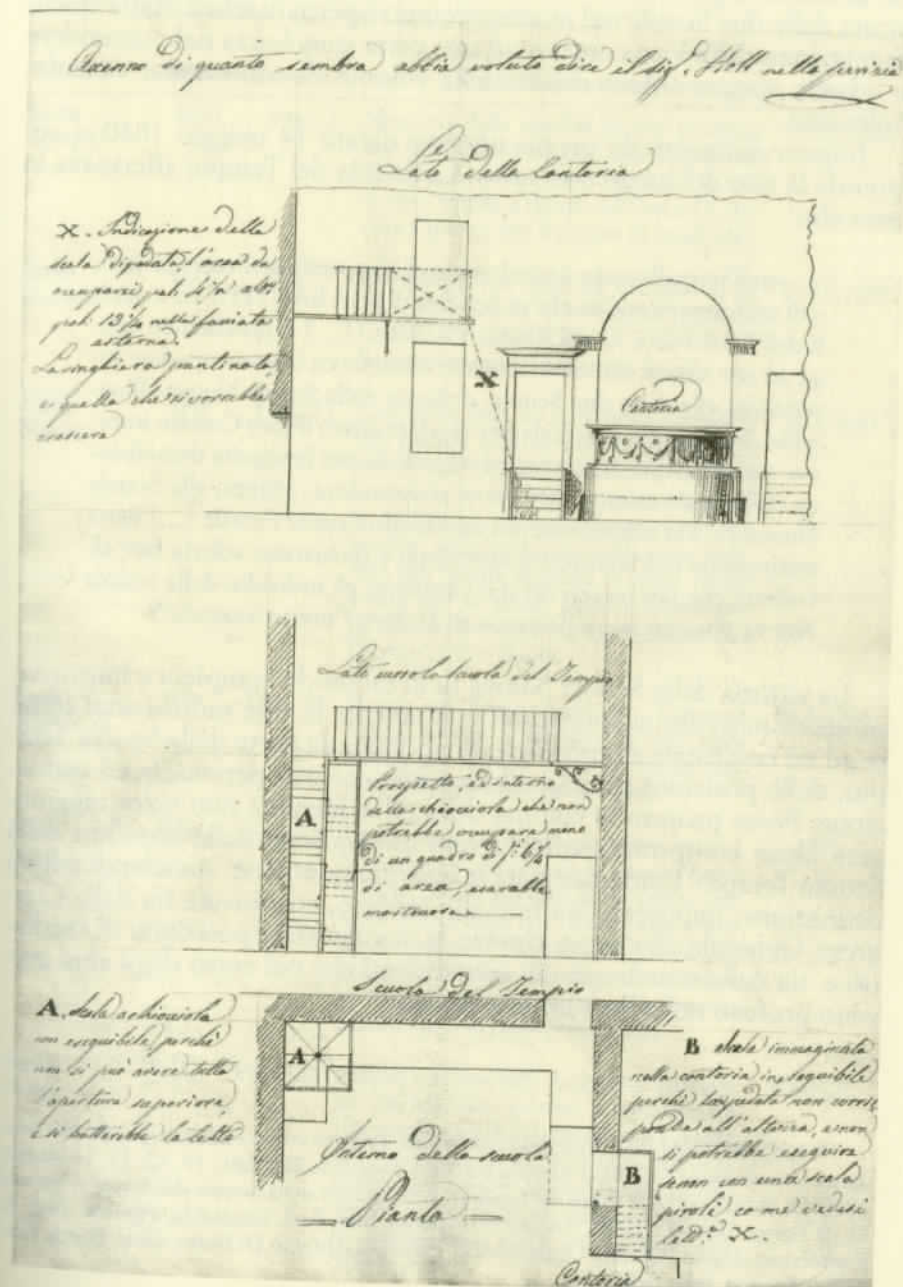 Cenno di quanto sembra abbia voluto dire il sig.r Holl nella perizia
Lato della Cantoria
X. Indicazione della
scala dipedata, l'area da
occuparsi pal: 4½ alt:
pal: 13¼ nella facciata
esterna.
La ringhiera puntinata,
è quella che si vorrebbe
crescere
X
Cantoria
Lato scuola del Tempio
A
Prospetto, ed interno
della chiocciola che non
potrebbe occupare meno
di un quadro di
di area, e sarebbe
Scuola del Tempio
A. Scala a chiocciola
non eseguibile perchè
non si può avere tutta
l'apertura superiore,
e si batterebbe la testa
A
Interno della scuola
Pianta
B
B scala immaginata
nella cantoria ineseguibile
perchè la pedata non corris
ponde all'altezza, e non
si potrebbe eseguire
senon con una scala
piroli come vedesi
lett.a X.
Cantoria